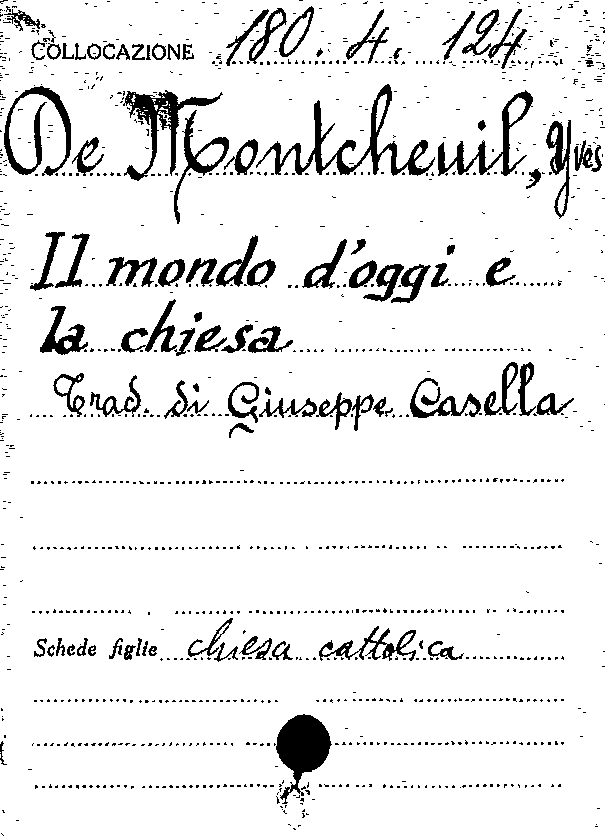 COLLOCAZIONE 180. 4. 124
De Montcheuil, Yves
Il mondo d'oggi e
la chiesa
Trad. di Giuseppe Casella
Schede figlie chiesa cattolica